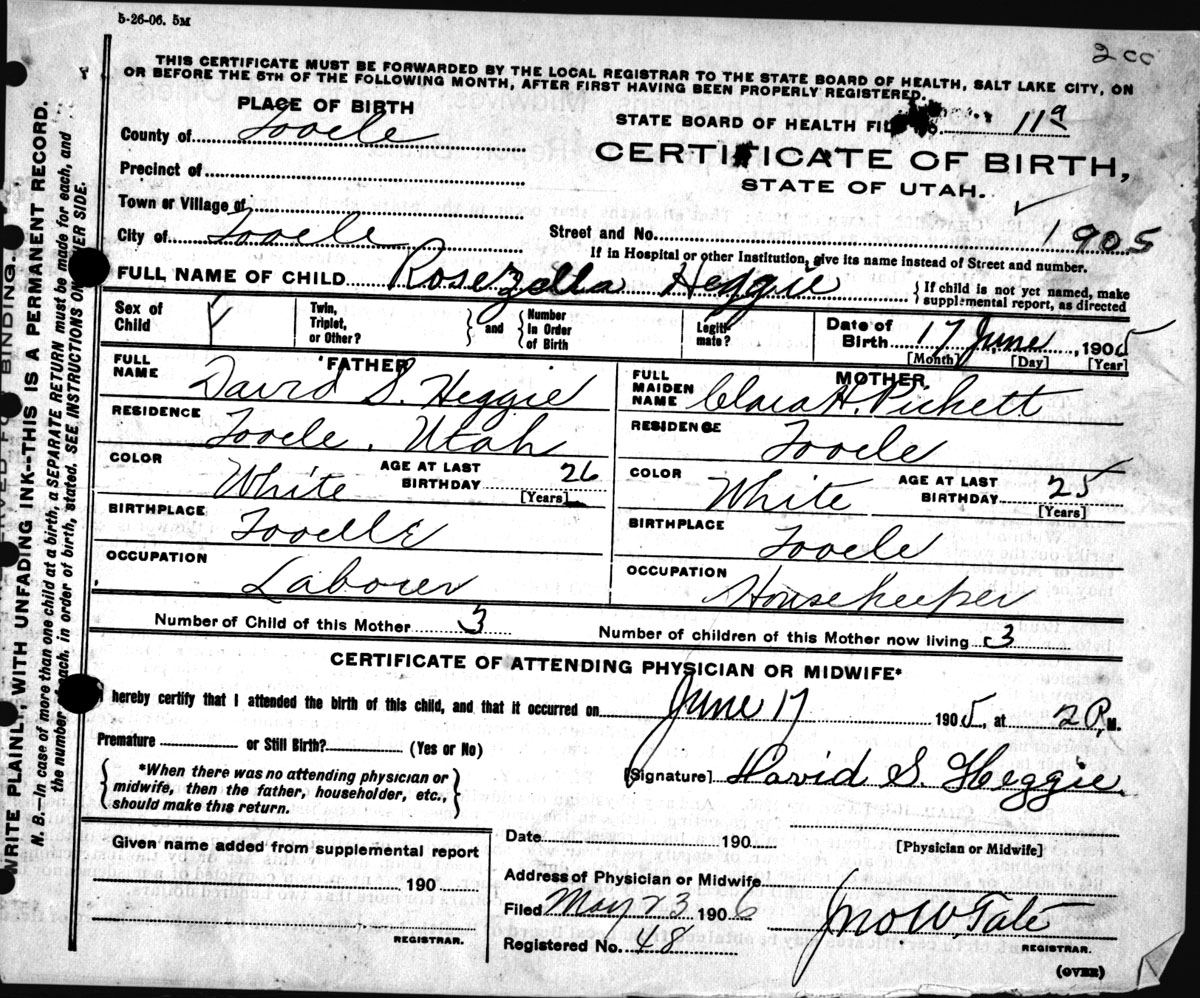 5-26-06. 5M
2 cc
THIS CERTIFICATE MUST BE FORWARDED BY THE LOCAL REGISTRAR TO THE STATE BOARD OF HEALTH, SALT LAKE CITY, ON
OR BEFORE THE 5TH OF THE FOLLOWING MONTH, AFTER FIRST HAVING BEEN PROPERLY REGISTERED.
PLACE OF BIRTH
STATE BOARD OF HEALTH FILE No. 11a
County of Tooele
CERTIFICATE OF BIRTH,
Precinct of
STATE OF UTAH.
Town or Village of
City of Tooele
Street and No. 1905
If in Hospital or other Institution, give its name instead of Street and number.
FULL NAME OF CHILD Rosezella Heggie
{If child is not yet named, make
supplemental report, as directed
Sex of Child
Twin, Triplet, or Other?
and
Number In Order of Birth
Legiti- mate?
Date of Birth 17 June, 1905
[Month] [Day] [Year]
FATHER
FULL NAME David S. Heggie
MOTHER
FULL MAIDEN NAME Clara H. Pickett
RESIDENCE Tooele, Utah
RESIDENCE Tooele
COLOR White
AGE AT LAST BIRTHDAY 26 [Years]
COLOR White
AGE AT LAST BIRTHDAY 25 [Years]
BIRTHPLACE Tooelle
BIRTHPLACE Tooele
OCCUPATION Laborer
OCCUPATION Housekeeper
Number of Child of this Mother 3
Number of children of this Mother now living 3
CERTIFICATE OF ATTENDING PHYSICIAN OR MIDWIFE*
I hereby certify that I attended the birth of this child, and that it occurred on June 17 1905, at 2 P. M.
Premature or Still Birth? (Yes or No)
{*When there was no attending physician or
midwife, then the father, householder, etc.,
should make this return.}
[Signature] David S. Heggie.
[Physician or Midwife]
Given name added from supplemental report
190
REGISTRAR.
Date 190
Address of Physician or Midwife
Filed May 23 1906
Jno W. Tate
REGISTRAR.
Registered No. 48
(OVER)
WRITE PLAINLY, WITH UNFADING INK--THIS IS A PERMANENT RECORD.
N. B.—In case of more than one child at a birth, a SEPARATE RETURN must be made for each, and
the number of each, in order of birth, stated. SEE INSTRUCTIONS ON OTHER SIDE.